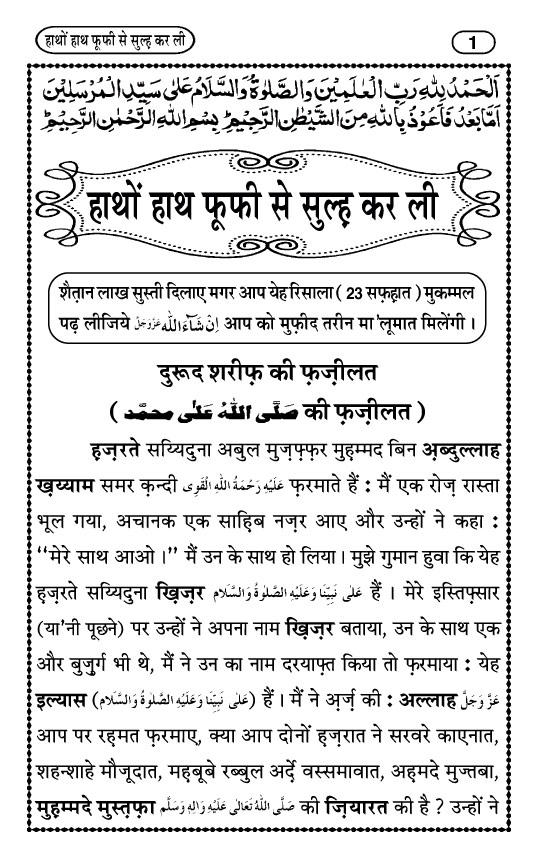 हाथों हाथ फूफी से सुल्ह़ कर ली
1
اَلْحَمْدُ لِلّٰهِ رَبِّ الْعٰلَمِيْنَ وَالصَّلٰوةُ وَالسَّلَامُ عَلٰى سَيِّدِ الْمُرْسَلِيْنَ
اَمَّا بَعْدُ فَاَعُوْذُ بِاللّٰهِ مِنَ الشَّيْطٰنِ الرَّجِيْمِ بِسْمِ اللّٰهِ الرَّحْمٰنِ الرَّحِيْمِ
हाथों हाथ फूफी से सुल्ह़ कर ली
शैत़ान लाख सुस्ती दिलाए मगर आप येह रिसाला ( 23 सफ़ह़ात ) मुकम्मल
पढ़ लीजिये اِنْ شَآءَ اللّٰه عَزَّوَجَلَّ आप को मुफ़ीद तरीन मा'लूमात मिलेंगी ।
दुरूद शरीफ़ की फ़ज़ीलत
( صَلَّى اللّٰهُ عَلٰى مُحَمَّد की फ़ज़ीलत )
ह़ज़रते सय्यिदुना अबुल मुज़फ़्फ़र मुह़म्मद बिन अ़ब्दुल्लाह
ख़य्याम समर क़न्दी عَلَيْهِ رَحْمَةُ اللّٰهِ الْقَوِى फ़रमाते हैं : मैं एक रोज़ रास्ता
भूल गया, अचानक एक साह़िब नज़र आए और उन्हों ने कहा :
“मेरे साथ आओ ।” मैं उन के साथ हो लिया । मुझे गुमान हुवा कि येह
ह़ज़रते सय्यिदुना ख़िज़र عَلٰى نَبِيِّنَا وَعَلَيْهِ الصَّلٰوةُ وَالسَّلَام हैं । मेरे इस्तिफ़्सार
(या'नी पूछने) पर उन्हों ने अपना नाम ख़िज़र बताया, उन के साथ एक
और बुज़ुर्ग भी थे, मैं ने उन का नाम दरयाफ़्त किया तो फ़रमाया : येह
इल्यास (عَلٰى نَبِيِّنَا وَعَلَيْهِ الصَّلٰوةُ وَالسَّلَام) हैं । मैं ने अ़र्ज़ की : अल्लाह عَزَّوَجَلَّ
आप पर रह़मत फ़रमाए, क्या आप दोनों ह़ज़रात ने सरवरे काएनात,
शहन्शाहे मौजूदात, मह़बूबे रब्बुल अर्दे़ वस्समावात, अह़मदे मुज्तबा,
मुह़म्मदे मुस्त़फ़ा صَلَّى اللّٰهُ تَعَالٰى عَلَيْهِ وَاٰلِهٖ وَسَلَّم की ज़ियारत की है ? उन्हों ने